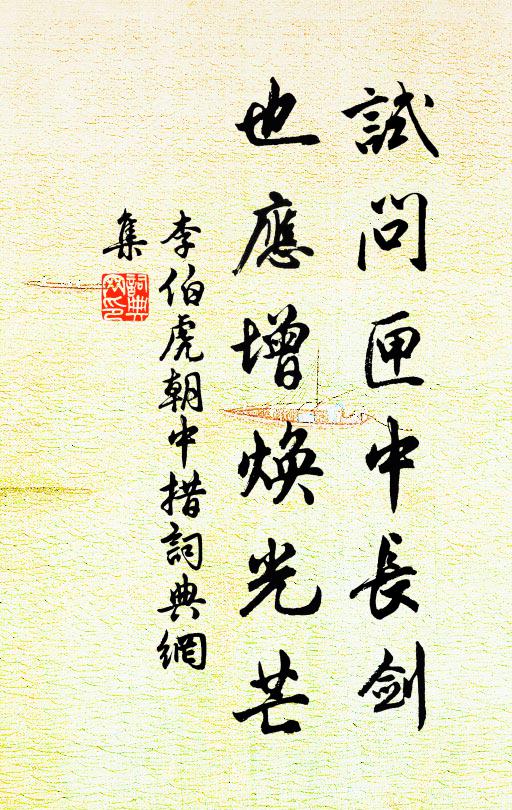 試問匣中長劍
也應增煥光芒
李伯虎朝中措詞典網
集
詞典
网印